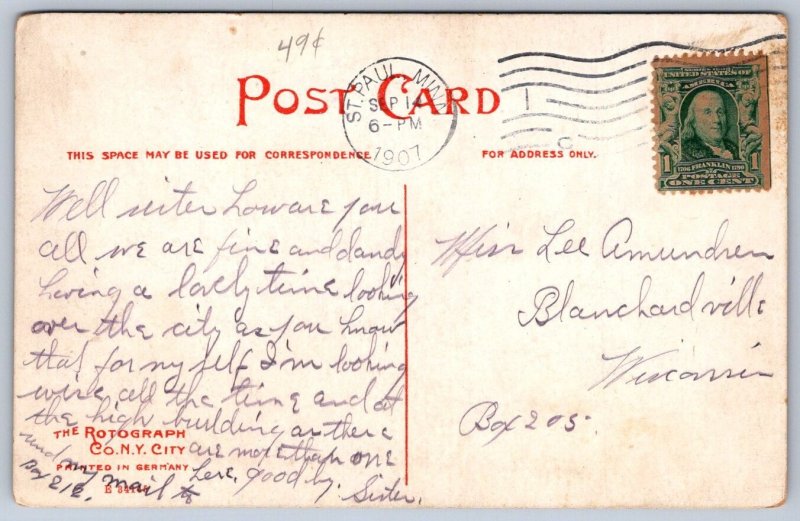 49¢
POST CARD
ST. PAUL, MINN.
SEP 14
6-PM
1907
UNITED STATES OF
AMERICA
1
1706 FRANKLIN 1790
POSTAGE
ONE CENT
1
THIS SPACE MAY BE USED FOR CORRESPONDENCE
FOR ADDRESS ONLY.
Well sister how are you
all we are fine and dandy
having a lovely time looking
over the city as you know
that for my self I'm looking
all the time and at
the high building as there
are more than one
here. good by. Sister.
send my mail to
Box 212.
THE ROTOGRAPH
CO. N.Y. CITY
PRINTED IN GERMANY
Miss Lee Amundsen
Blanchardville
Wisconsin
Box 205.